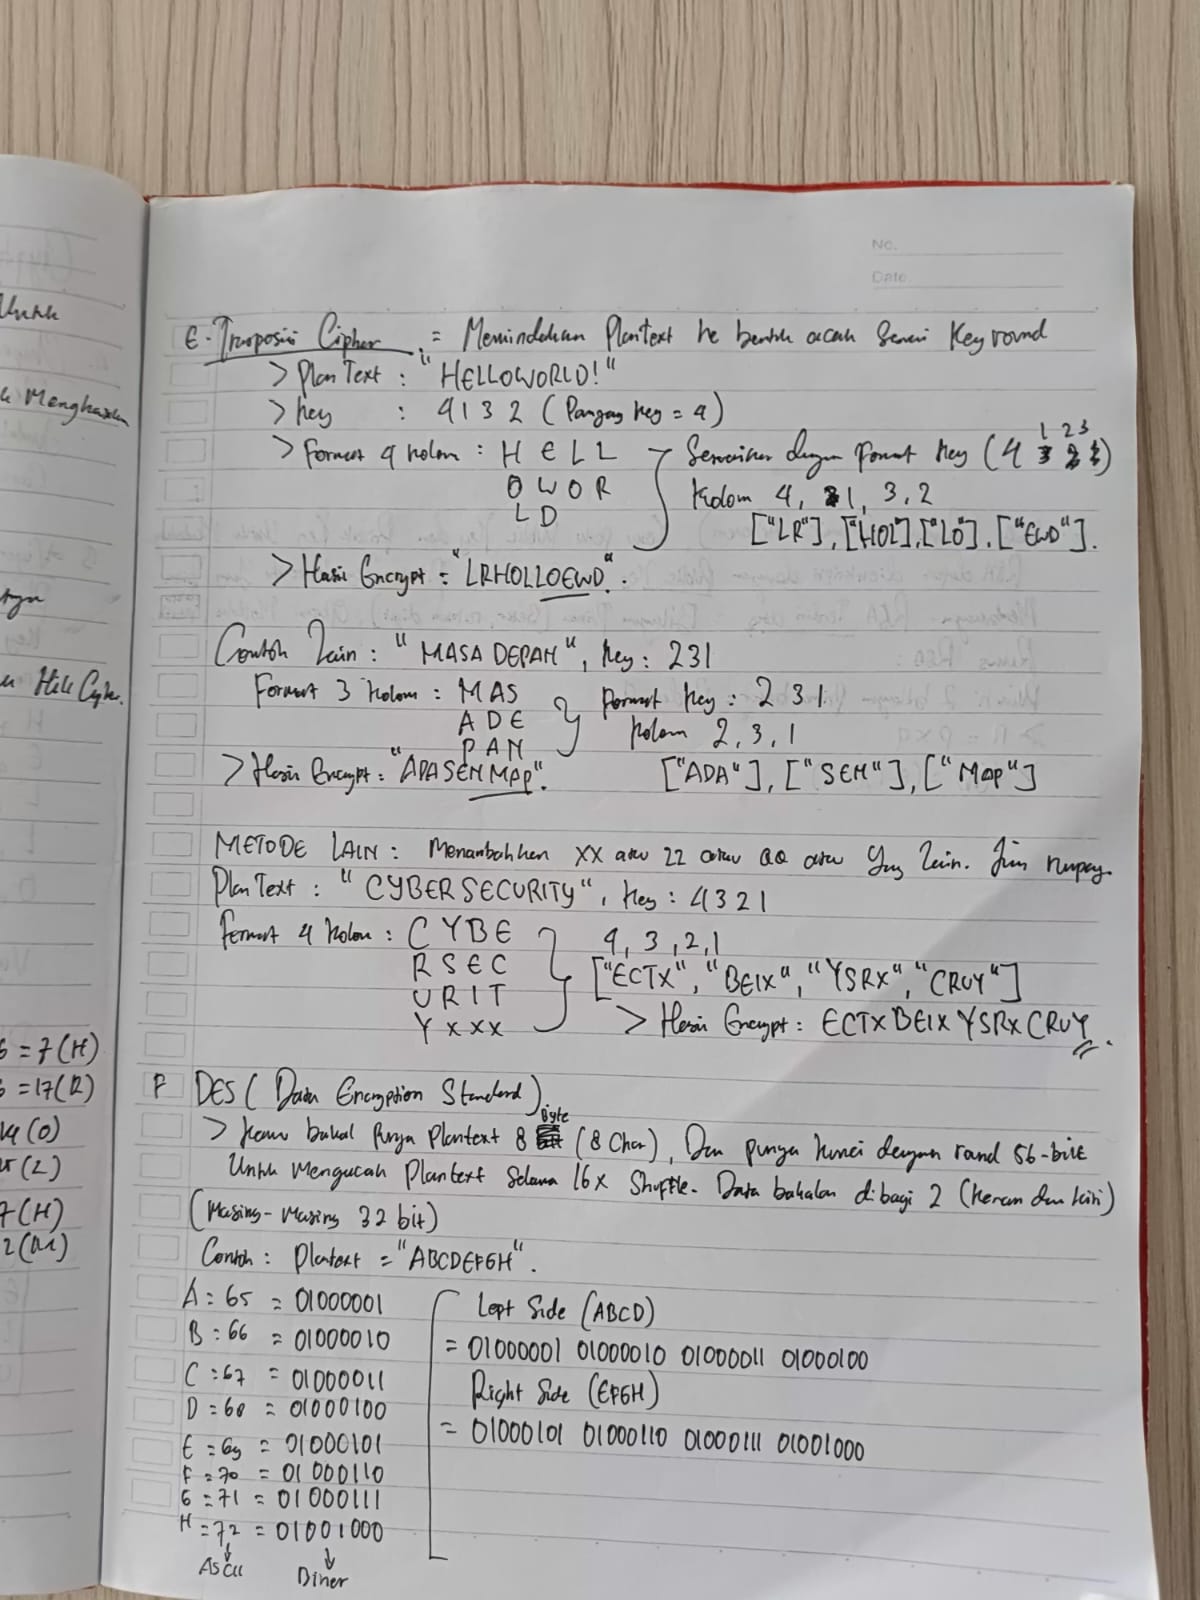 No.
Date
Untuk
Menghasilkan
Hill Cipher.
= 7 (H)
= 17 (R)
(O)
(L)
7 (H)
E. Tranposisi Cipher = Memindahkan PlanText ke bentuk acak sesuai Key round
> Plan Text : "HELLOWORLD!"
> Key : 4132 (Panjang key = 4)
> Format 4 kolom : H E L L
O W O R
L D
Sesuaikan dengan format key (4 1 2 3)
Kolom 4, 1, 3, 2
["LR"], ["HOL"], ["LO"], ["EWD"].
> Hasil Encrypt = "LRHOLLOEWD".
Contoh Lain : "MASA DEPAN", key : 231
Format 3 kolom : MAS
ADE
PAN
Format key : 2 3 1
Kolom 2, 3, 1
> Hasil Encrypt = "ADASENMAP".
["ADA"], ["SEN"], ["MAP"]
METODE LAIN : Menambahkan XX atau ZZ atau QQ atau Yng Lain.
Plan Text : "CYBERSECURITY", key : 4321
Format 4 kolom : C Y B E
R S E C
U R I T
Y X X X
4, 3, 2, 1
["ECTX", "BEIX", "YSRX", "CRUY"]
> Hasil Encrypt : ECTXBEIXYSRXCRUY.
F DES (Data Encryption Standard)
> Kamu bakal punya Plantext 8 Byte (8 Char), Dan punya kunci dengan round 56-bit
Untuk mengacak Plantext Selama 16x Shuffle. Data bakalan dibagi 2 (Kanan dan kiri)
(Masing-Masing 32 bit)
Contoh : Plantext = "ABCDEFGH".
A = 65 = 01000001
B = 66 = 01000010
C = 67 = 01000011
D = 68 = 01000100
E = 69 = 01000101
F = 70 = 01000110
G = 71 = 01000111
H = 72 = 01001000
ASCII
Biner
Left Side (ABCD)
= 01000001 01000010 01000011 01000100
Right Side (EFGH)
= 01000101 01000110 01000111 01001000